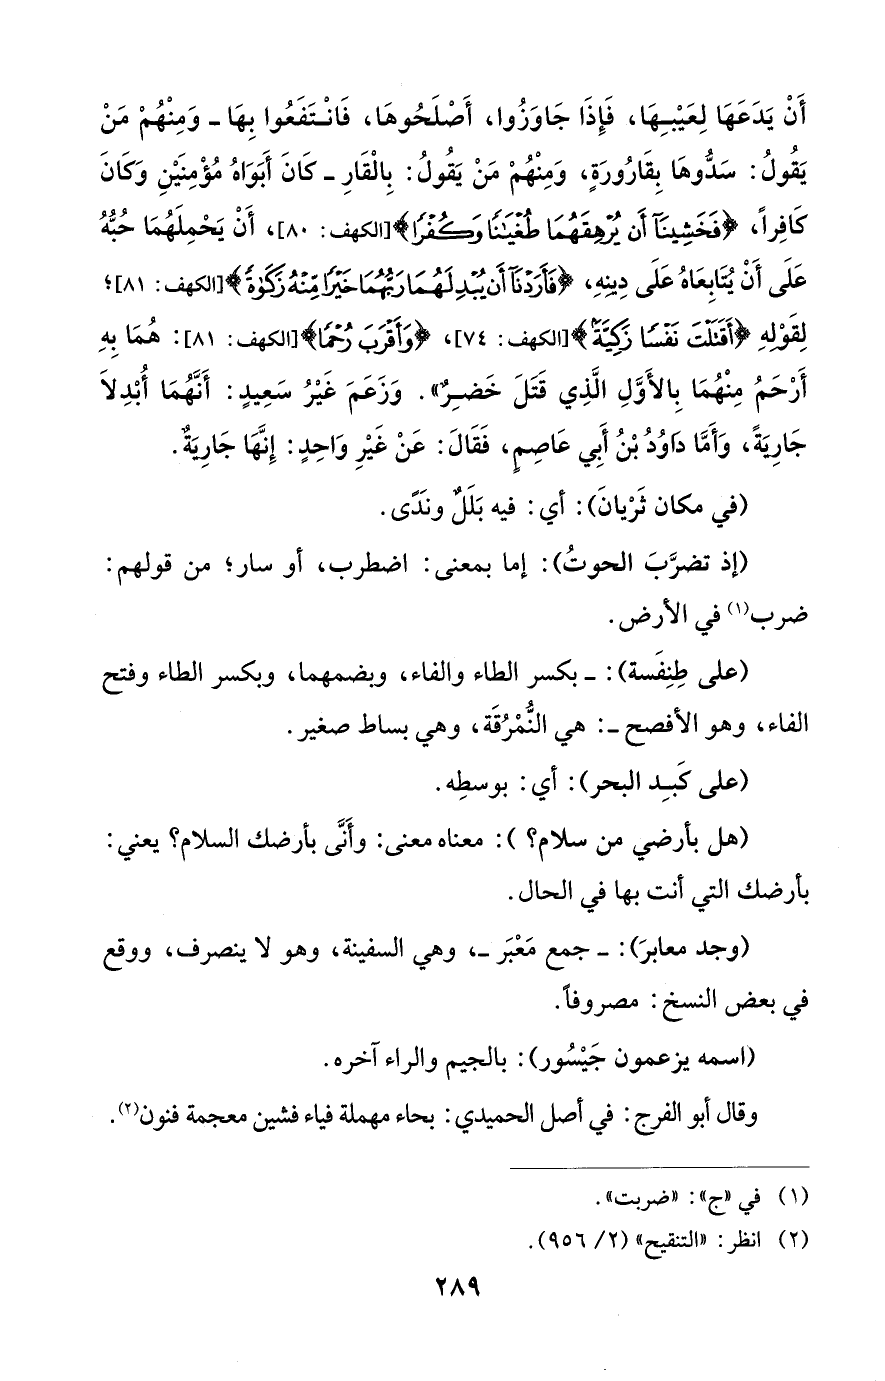 أَنْ يَدَعَهَا لِعَيْبِهَا، فَإِذَا جَاوَزُوا، أَصْلَحُوهَا، فَانْتَفَعُوا بِهَا ـ وَمِنْهُمْ مَنْ
يَقُولُ: سَدُّوهَا بِقَارُورَةٍ، وَمِنْهُمْ مَنْ يَقُولُ: بِالْقَارِ ـ كَانَ أَبَوَاهُ مُؤْمِنَيْنِ وَكَانَ
كَافِراً، ﴿فَخَشِينَآ أَن يُرْهِقَهُمَا طُغْيَٰنًا وَكُفْرًا﴾[الكهف: ٨٠]، أَنْ يَحْمِلَهُمَا حُبُّهُ
عَلَى أَنْ يُتَابِعَاهُ عَلَى دِينِهِ، ﴿فَأَرَدْنَآ أَن يُبْدِلَهُمَا رَبُّهُمَا خَيْرًا مِّنْهُ زَكَوٰةً﴾[الكهف: ٨١]؛
لِقَوْلِهِ ﴿أَقَتَلْتَ نَفْسًا زَكِيَّةً﴾[الكهف: ٧٤]، ﴿وَأَقْرَبَ رُحْمًا﴾[الكهف: ٨١]: هُمَا بِهِ
أَرْحَمُ مِنْهُمَا بِالأَوَّلِ الَّذِي قَتَلَ خَضِرٌ». وَزَعَمَ غَيْرُ سَعِيدٍ: أَنَّهُمَا أُبْدِلاَ
جَارِيَةً، وَأَمَّا دَاوُدُ بْنُ أَبِي عَاصِمٍ، فَقَالَ: عَنْ غَيْرِ وَاحِدٍ: إِنَّهَا جَارِيَةٌ.
(في مكان ثَرْيانَ): أي: فيه بَلَلٌ ونَدًى.
(إذ تضرَّبَ الحوتُ): إما بمعنى: اضطرب، أو سار؛ من قولهم:
ضرب(١) في الأرض.
(على طِنِفَسة): ـ بكسر الطاء والفاء، وبضمهما، وبكسر الطاء وفتح
الفاء، وهو الأفصح ـ: هي النُّمْرُقَة، وهي بساط صغير.
(على كَبِد البحر): أي: بوسطِه.
(هل بأرضي من سلام؟ ): معناه معنى: وأَنَّى بأرضك السلام؟ يعني:
بأرضك التي أنت بها في الحال.
(وجد معابرَ): ـ جمع مَعْبَر ـ، وهي السفينة، وهو لا ينصرف، ووقع
في بعض النسخ: مصروفاً.
(اسمه يزعمون جَيْسُور): بالجيم والراء آخره.
وقال أبو الفرج: في أصل الحميدي: بحاء مهملة فياء فشين معجمة فنون(٢).
(١) في «ج»: «ضربت».
(٢) انظر: «التنقيح» (٢/ ٩٥٦).
٢٨٩